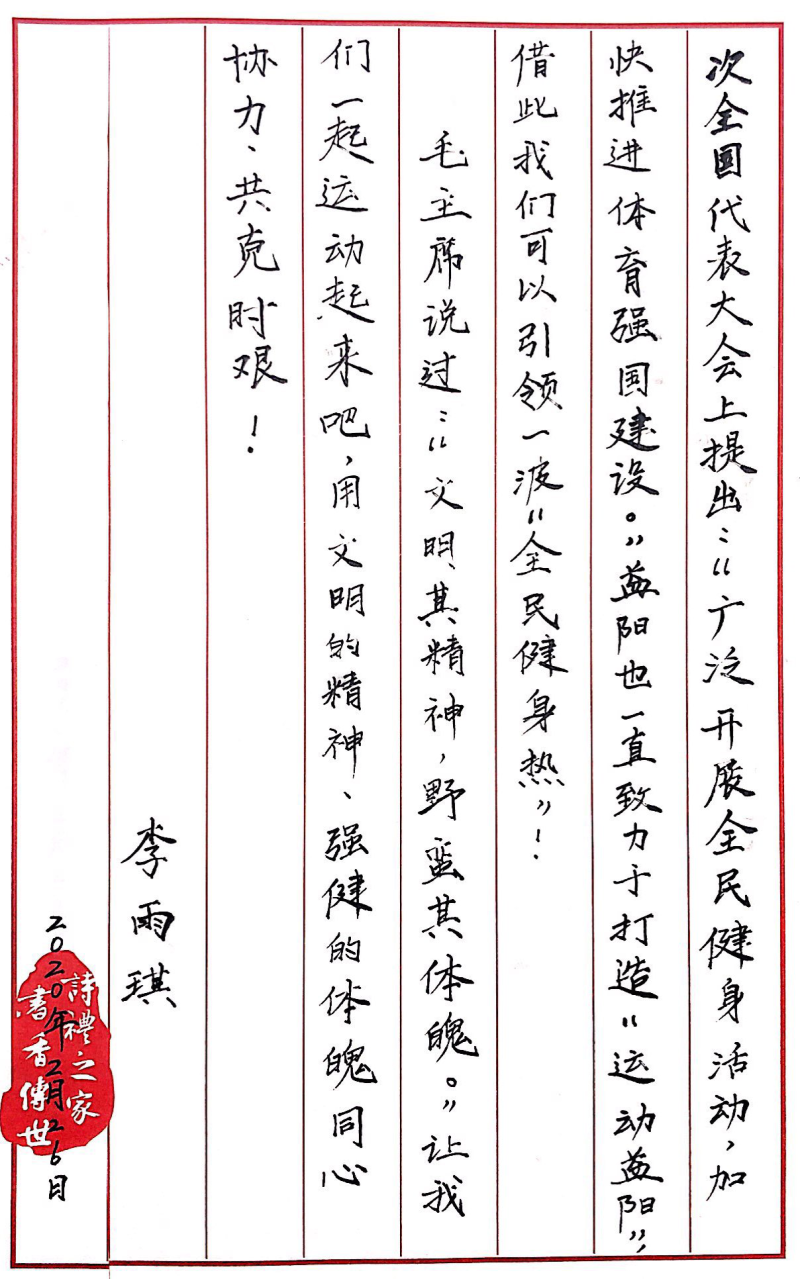 次全国代表大会上提出：“广泛开展全民健身活动，加
快推进体育强国建设。”益阳也一直致力于打造“运动益阳”，
借此我们可以引领一波“全民健身热”！
毛主席说过：“文明其精神，野蛮其体魄。”让我
们一起运动起来吧，用文明的精神、强健的体魄同心
协力、共克时艰！
李雨琪
2020年2月26日
詩禮之家
書香傳世